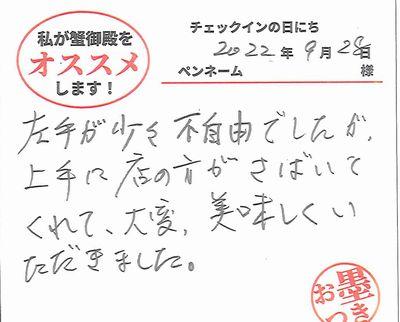 私が蟹御殿を
オススメ
します！
チェックインの日にち
2022年9月28日
ペンネーム 様
左手が少々不自由でしたが、
上手に店の方がさばいて
くれて、大変、美味しくい
ただきました。
お墨つき